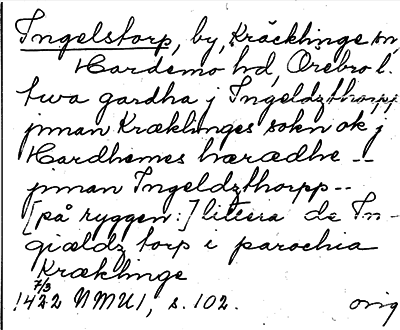 Ingelstorp, by, Kräcklinge sn,
Hardemo hd, Örebro l.
twa gardha j Ingeldzthorpp
jnnan Kræklinges sokn ok j
Hardhemes hæradhe --
jnnan Ingeldzthorpp--
[på ryggen:] littera de In-
giældz torp i parochia
Kræklinge
7/3
1422 NMU1, s. 102. orig